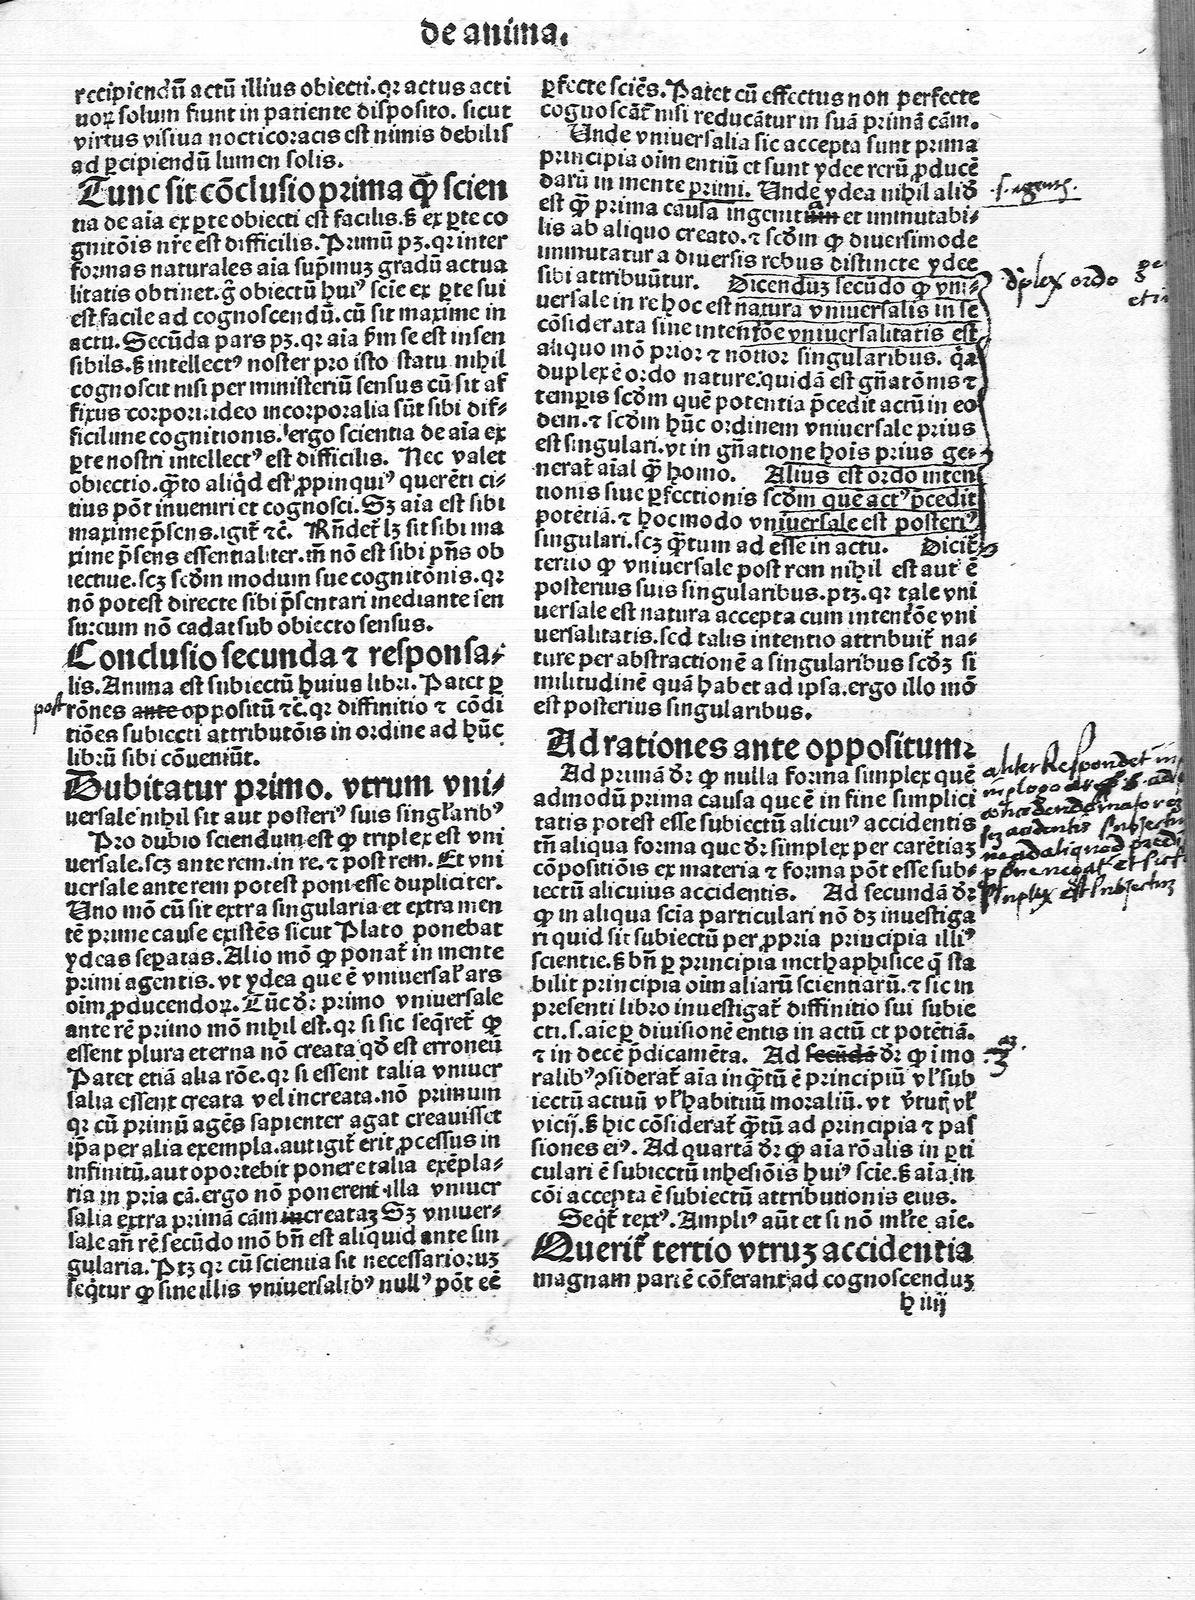 de anima.
recipiendū actū illius obiecti. qꝛ actus acti
uoꝝ solum fiunt in patiente disposito. sicut
virtus visiua nocticoracis est nimis debilis
ad ꝑcipiendū lumen solis.
Tunc sit cōclusio prima ꝙ̄ scien
tia de aīa ex ꝑte obiecti est facilis. s̄ ex ꝑte co
gnitōis nr̄e est difficilis. Primū pꝫ. qꝛ inter
formas naturales aīa sup̄muꝫ gradū actua
litatis obtinet. g̊ obiectū huiꝰ scīe ex ꝑte sui
est facile ad cognoscendū. cū sit maxime in
actu. Secūda pars pꝫ. qꝛ aīa ẜm se est insen
sibilis. s̄ intellectꝰ noster pro isto statu nihil
cognoscit nisi per ministeriū sensus cū sit af
fixus corpori. ideo incorporalia sūt sibi dif⸗
ficilime cognitionis. ergo scientia de aīa ex
ꝑte nostri intellectꝰ est difficilis. Nec valet
obiectio. ꝙ̄to aliqͥd est ꝓpinquiꝰ querēti ci⸗
tius pōt inueniri et cognosci. Sꝫ aīa est sibi
maxime p̄sens. igit̄ ⁊c̄. Rn̄det̄ lꝫ sit sibi ma
xime p̄sens essentialiter. m̄ nō est sibi pn̄s ob
iectiue. scꝫ scd̄m modum sue cognitōnis. qꝛ
nō potest directe sibi p̄sentari mediante sen
su: cum nō cadat sub obiecto sensus.
Conclusio secunda ⁊ responsa⸗
lis. Anima est subiectū huius libri. Patet ꝑ
post
rōnes ante oppositū ⁊c̄. qꝛ diffinitio ⁊ cōdi
tiōes subiecti attributōis in ordine ad hūc
librū sibi cōueniūt.
Dubitatur primo. vtrum vni⸗
uersale nihil sit aut posteriꝰ suis singl̄aribꝰ
Pro dubio sciendum est ꝙ triplex est vni
uersale. scꝫ ante rem. in re. ⁊ post rem. Et vni
uersale ante rem potest poni esse dupliciter.
Uno mō cū sit extra singularia et extra men
tē prime cause existēs sicut Plato ponebat
ydeas seꝑatas. Alio mō ꝙ ponat̄ in mente
primi agentis. vt ydea que ē vniuersal̄ ars
oīm ꝓducendoꝝ. Tūc dꝛ̄ primo vniuersale
ante rē primo mō nihil est. qꝛ si sic seqret̄ ꝙ
essent plura eterna nō creata qd̄ est erroneū
Patet etiā alia rōe. qꝛ si essent talia vniuer
salia essent creata vel increata. nō primum
qꝛ cū primū agēs sapienter agat creauisset
ip̄a per alia exempla. aut igit̄ erit ꝓcessus in
infinitū. aut oportebit ponere talia exēpla⸗
ria in pria cā. ergo nō ponerent illa vniuer
salia extra primā cām increataꝫ Sꝫ vniuer⸗
sale an̄ rē secūdo mō bn̄ est aliquid ante sin
gularia. Ptꝫ qꝛ cū scientia sit necessarioruꝫ
seqͥtur ꝙ sine illis vniuersalibꝰ nullꝰ pōt eē
ꝑfecte sciēs. Patet cū effectus non perfecte
cognoscāt̄ nisi reducātur in suā primā cām.
Unde vniuersalia sic accepta sunt prima
principia oīm entiū et sunt ydee rerū ꝓducē
darū in mente primi. Unde ydea nihil aliō
.s. agentis.
est ꝙ̄ prima causa ingenitum et immutabi⸗
lis ab aliquo creato. ⁊ scd̄m ꝙ diuersimode
immutatur a diuersis rebus distincte ydee
sibi attribuūtur. Dicenduꝫ secūdo ꝙ vni⸗
duplex ordo
uersale in re hoc est natura vniuersalis in se
cōsiderata sine intentōe vniuersalitatis est
aliquo mō prior ⁊ notior singularibus. qͣ
duplex ē ordo nature. quidā est gn̄atōnis ⁊
temꝑis scd̄m quē potentia p̄cedit actū in eo
dem. ⁊ scd̄m hūc ordinem vniuersale prius
est singulari. vt in gn̄atione hoīs prius ge⸗
nerat̄ aīal ꝙ̄ homo. Alius est ordo inten
tionis siue ꝑfectionis scd̄m quē actꝰ p̄cedit
potētiā. ⁊ hoc modo vniuersale est posteriꝰ
singulari. scꝫ ꝙ̄tum ad esse in actu. Dicit̄
tertio ꝙ vniuersale post rem nihil est aut ē
posterius suis singularibus. ptꝫ. qꝛ tale vni
uersale est natura accepta cum intentōe vni
uersalitatis. sed talis intentio attribuit̄ na⸗
ture per abstractionē a singularibus scd̄ꝫ si
militudinē quā habet ad ipsa. ergo illo mō
est posterius singularibus.
Ad rationes ante oppositum:
Ad primā dꝛ̄ ꝙ nulla forma simplex quē
admodū prima causa que ē in fine simplici
tatis potest esse subiectū alicuiꝰ accidentis
tn̄ aliqua forma que dꝛ̄ simplex per carētiaꝫ
cōpositiōis ex materia ⁊ forma pōt esse sub⸗
iectū alicuius accidentis. Ad secundā dꝛ̄
aliter Respondet
simplex est subiectum
ꝙ in aliqua scīa particulari nō dꝫ inuestiga
ri quid sit subiectū per ꝓpria principia illiꝰ
scientie. s̄ bn̄ ꝑ principia methaphisice q̄ sta
bilit principia oīm aliarū scientiarū. ⁊ sic in
presenti libro inuestigat̄ diffinitio sui subie
cti. s. aīe ꝑ diuisionē entis in actū et potētiā.
⁊ in decē p̄dicamēta. Ad secūdā dꝛ̄ ꝙ imo
ralibꝰ ꝯsiderat̄ aīa inꝙ̄tū ē principiū vl̄ sub
iectū actuū vl̄ habituū moraliū. vt v̄tutꝭ vl̄
vicij. s̄ hic cōsiderat̄ ꝙ̄tū ad principia ⁊ pas
siones eiꝰ. Ad quartā dꝛ̄ ꝙ aīa rōalis in ꝑti
culari ē subiectū inhesiōis huiꝰ scīe. s̄ aīa in
cōi accepta ē subiectū attributionis eius.
Seqͥt̄ textꝰ. Ampliꝰ aūt et si nō ml̄te aīe.
Querit̄ tertio vtruꝫ accidentia
magnam partē cōferant ad cognoscenduꝫ
h iiij